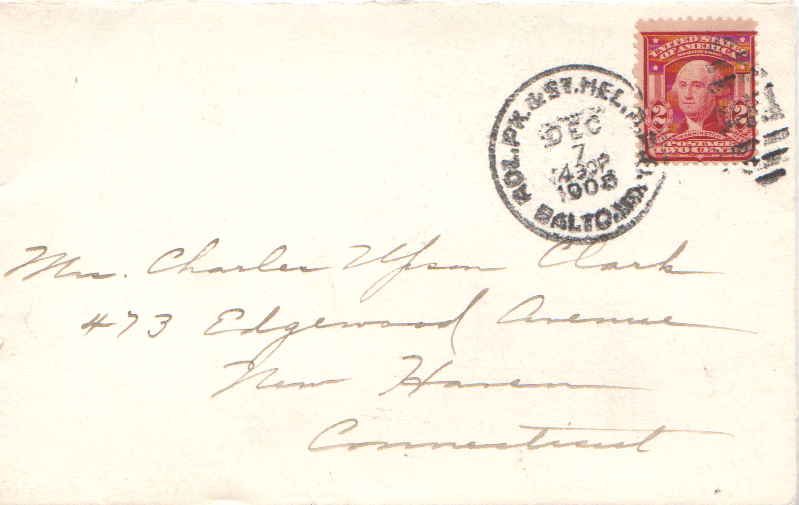 UNITED STATES
OF AMERICA
2 2
WASHINGTON
POSTAGE
TWO CENTS
ROL. PK. & ST. HEL.
DEC
7
430P
1908
BALTO. MD.
Mrs. Charles Upson Clark
473 Edgewood Avenue
New Haven
Connecticut